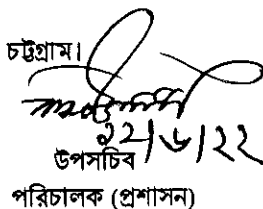 চট্টগ্রাম।
২২/৬/২২
উপসচিব
পরিচালক (প্রশাসন)